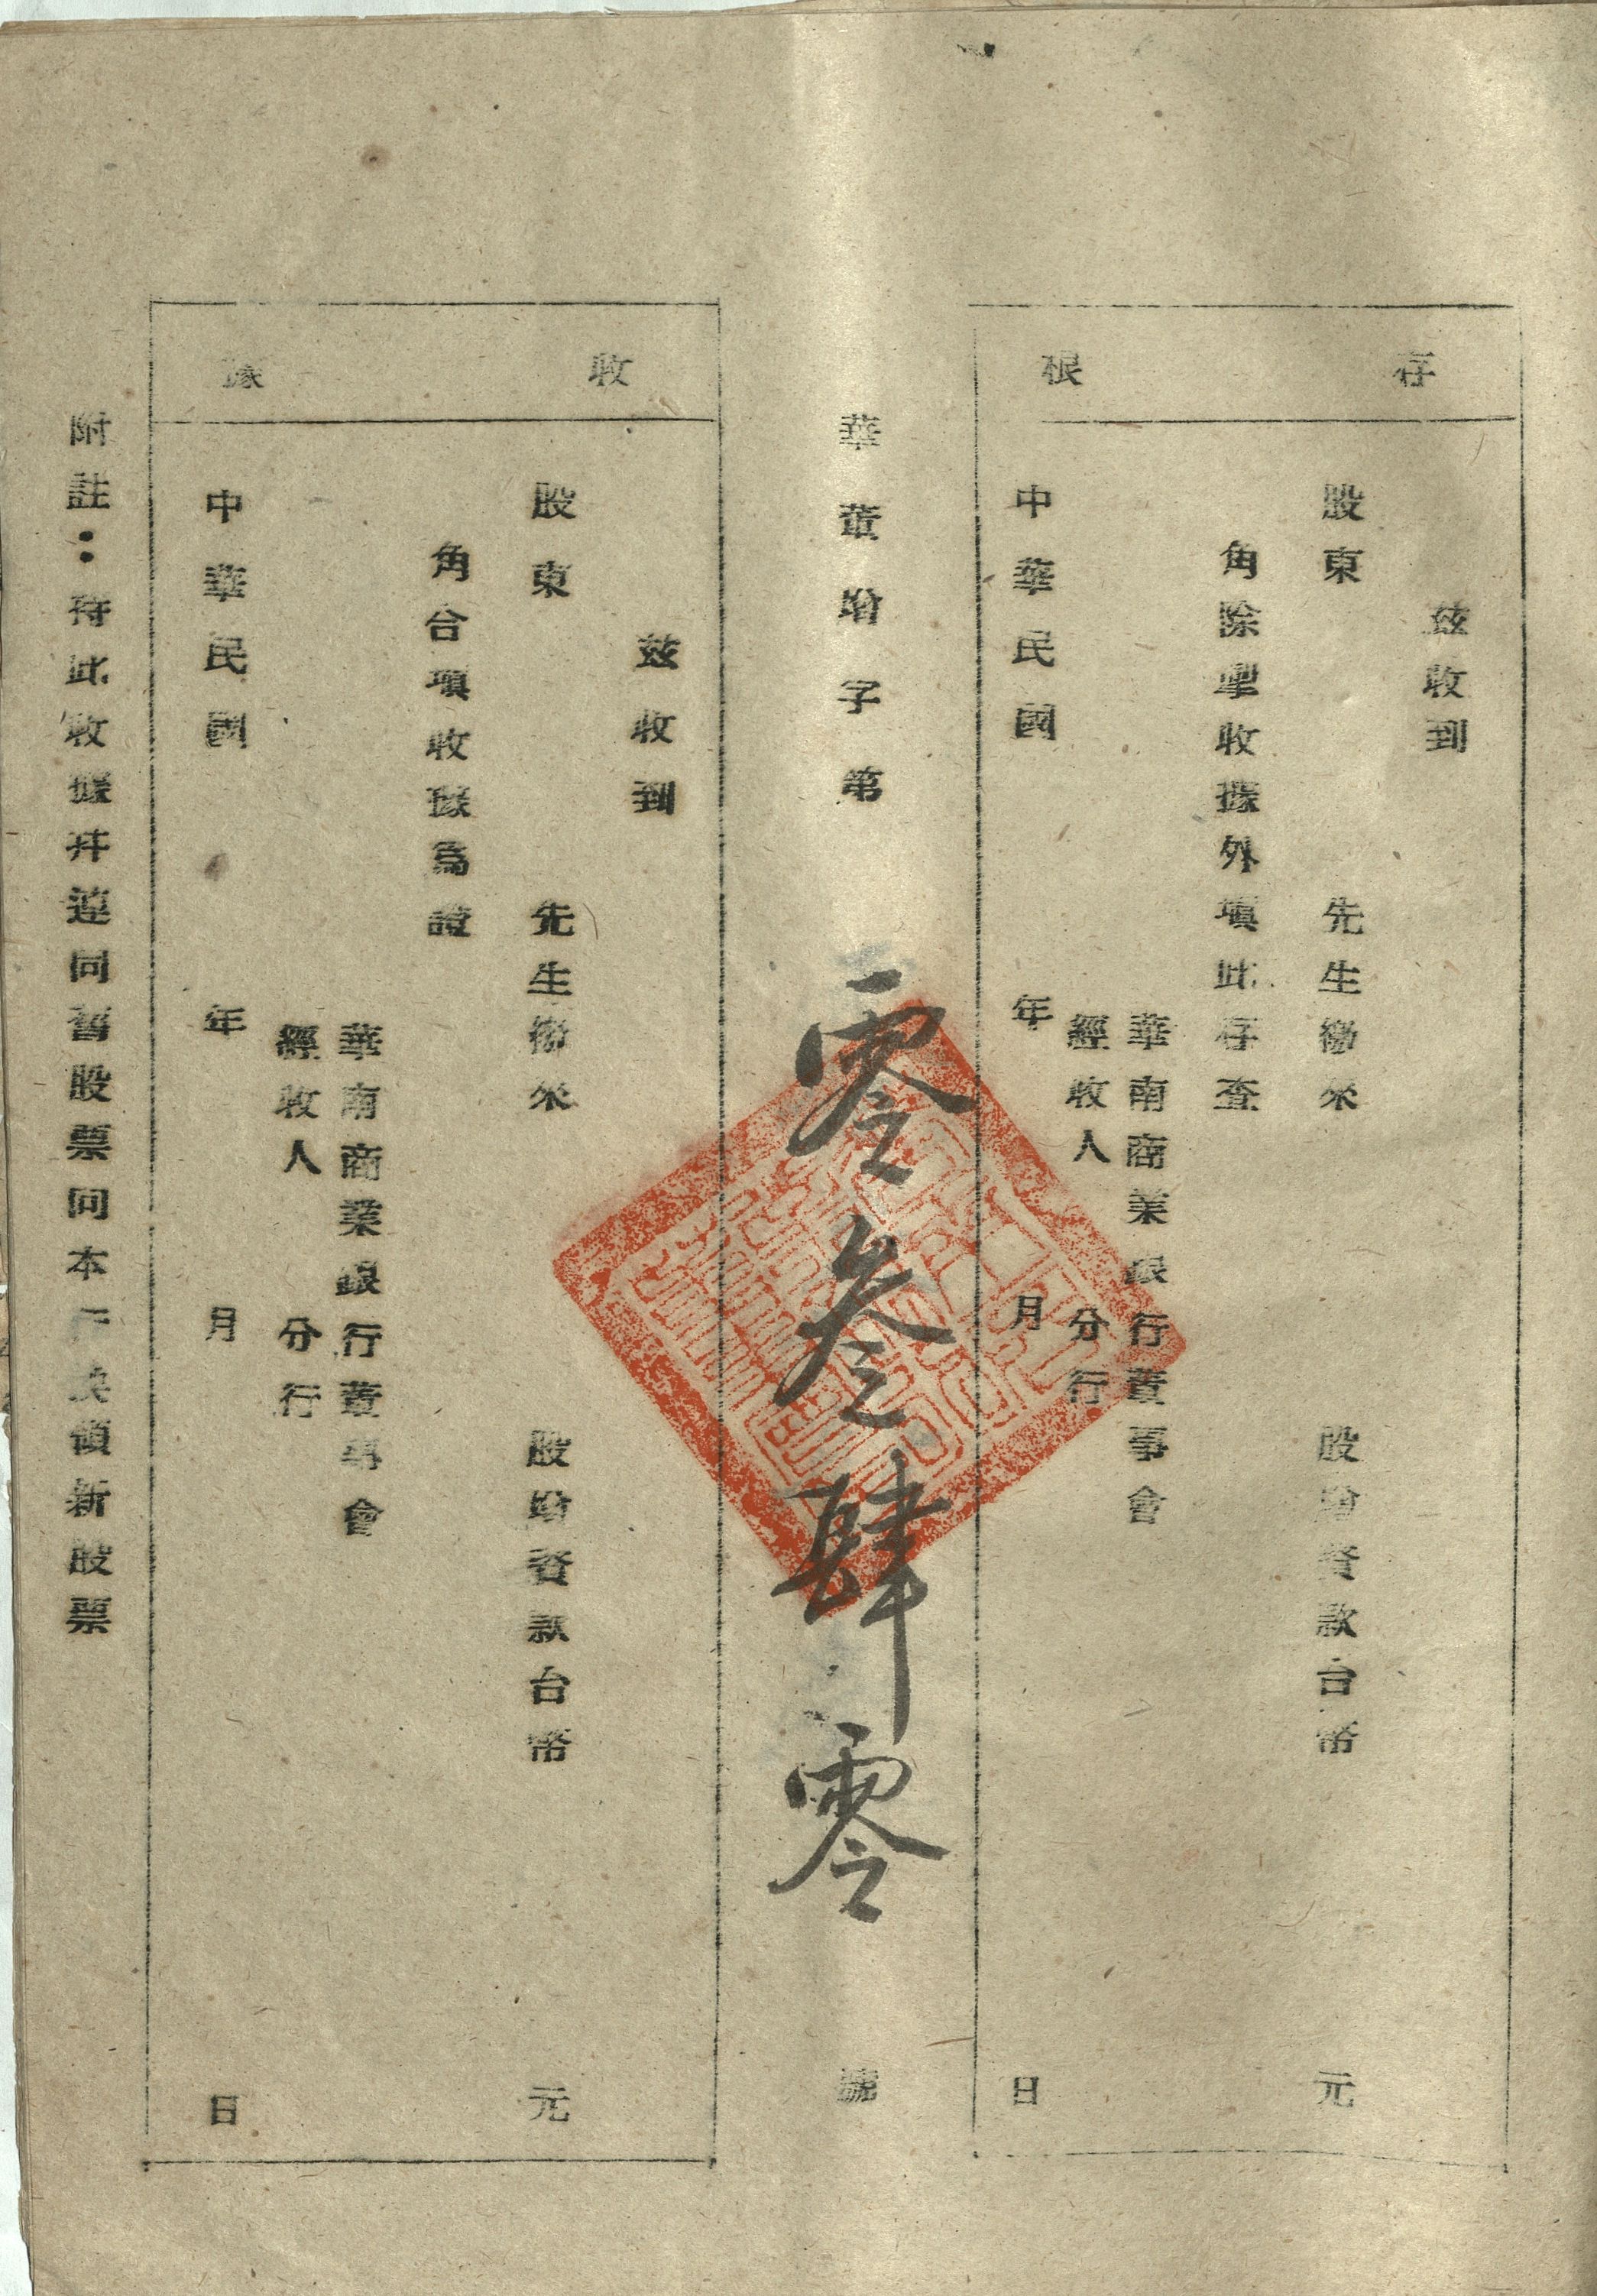 存根
茲收到
股東 先生繳來 股增資款台幣 元
角除掣收據外塡此存查
華南商業銀行董事會
經收人 分行
中華民國 年 月 日
華董增字第零叁肆零號
收據
茲收到
股東 先生繳來 股增資款台幣 元
角合塡收據爲證
華南商業銀行董事會
經收人 分行
中華民國 年 月 日
附註：待此收據幷連同舊股票向本行換領新股票